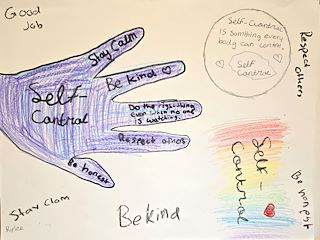 Good
Job
Stay Calm
Be kind
Self-
Control
Do the right thing
even when no one
is watching.
Respect others
Be honest
Self-Control
is somthing every
body can control.
Self
Control
Respect
others
Self-
Control
Be honest
Stay Clam
Be kind
Rylee